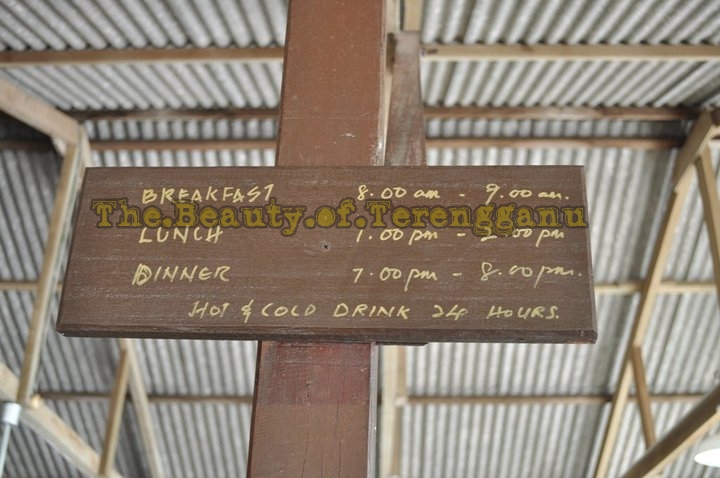 BREAKFAST 8.00 am - 9.00 am.
The.Beauty.of.Terengganu
LUNCH 1.00 pm - 2.00 pm
DINNER 7.00 pm - 8.00 pm.
HOT & COLD DRINK 24 HOURS.